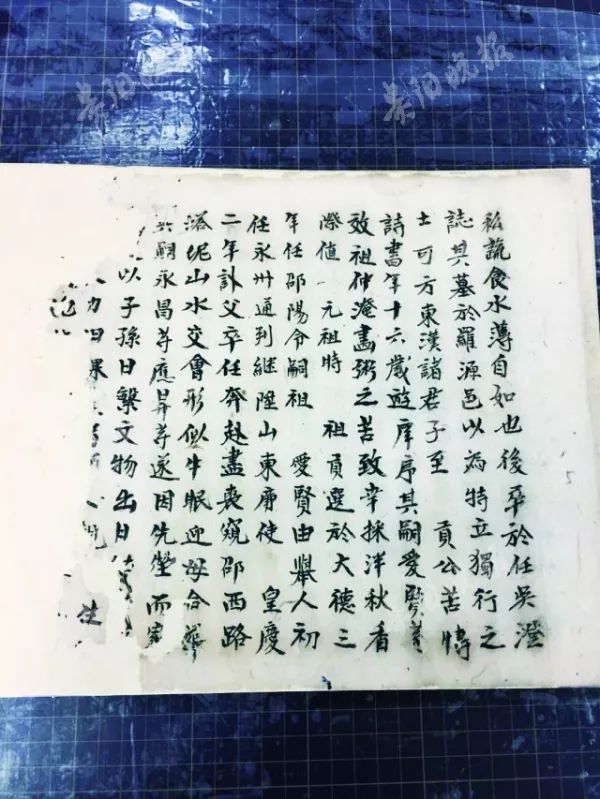 貴阳晚报
私蔬食水薄自如也後卒於任吳澄
誌其墓於羅源邑以為特立獨行之
士可方東漢諸君子至 貢公苦志
詩書年十六歲遊庠序其嗣愛賢等
效祖仲淹畫粥之苦致幸採泮秋香
際值 元祖時 祖貢選於大德三
年任邵陽令嗣祖 愛賢由舉人初
任永州通判繼陞山東廉使 皇慶
二年訃父卒任奔赴盡喪窺邵西路
塔坭山水交會形似牛眠迎母合葬
嗣永昌等應昇等遂因先塋而家
以子孫日繫文物出日